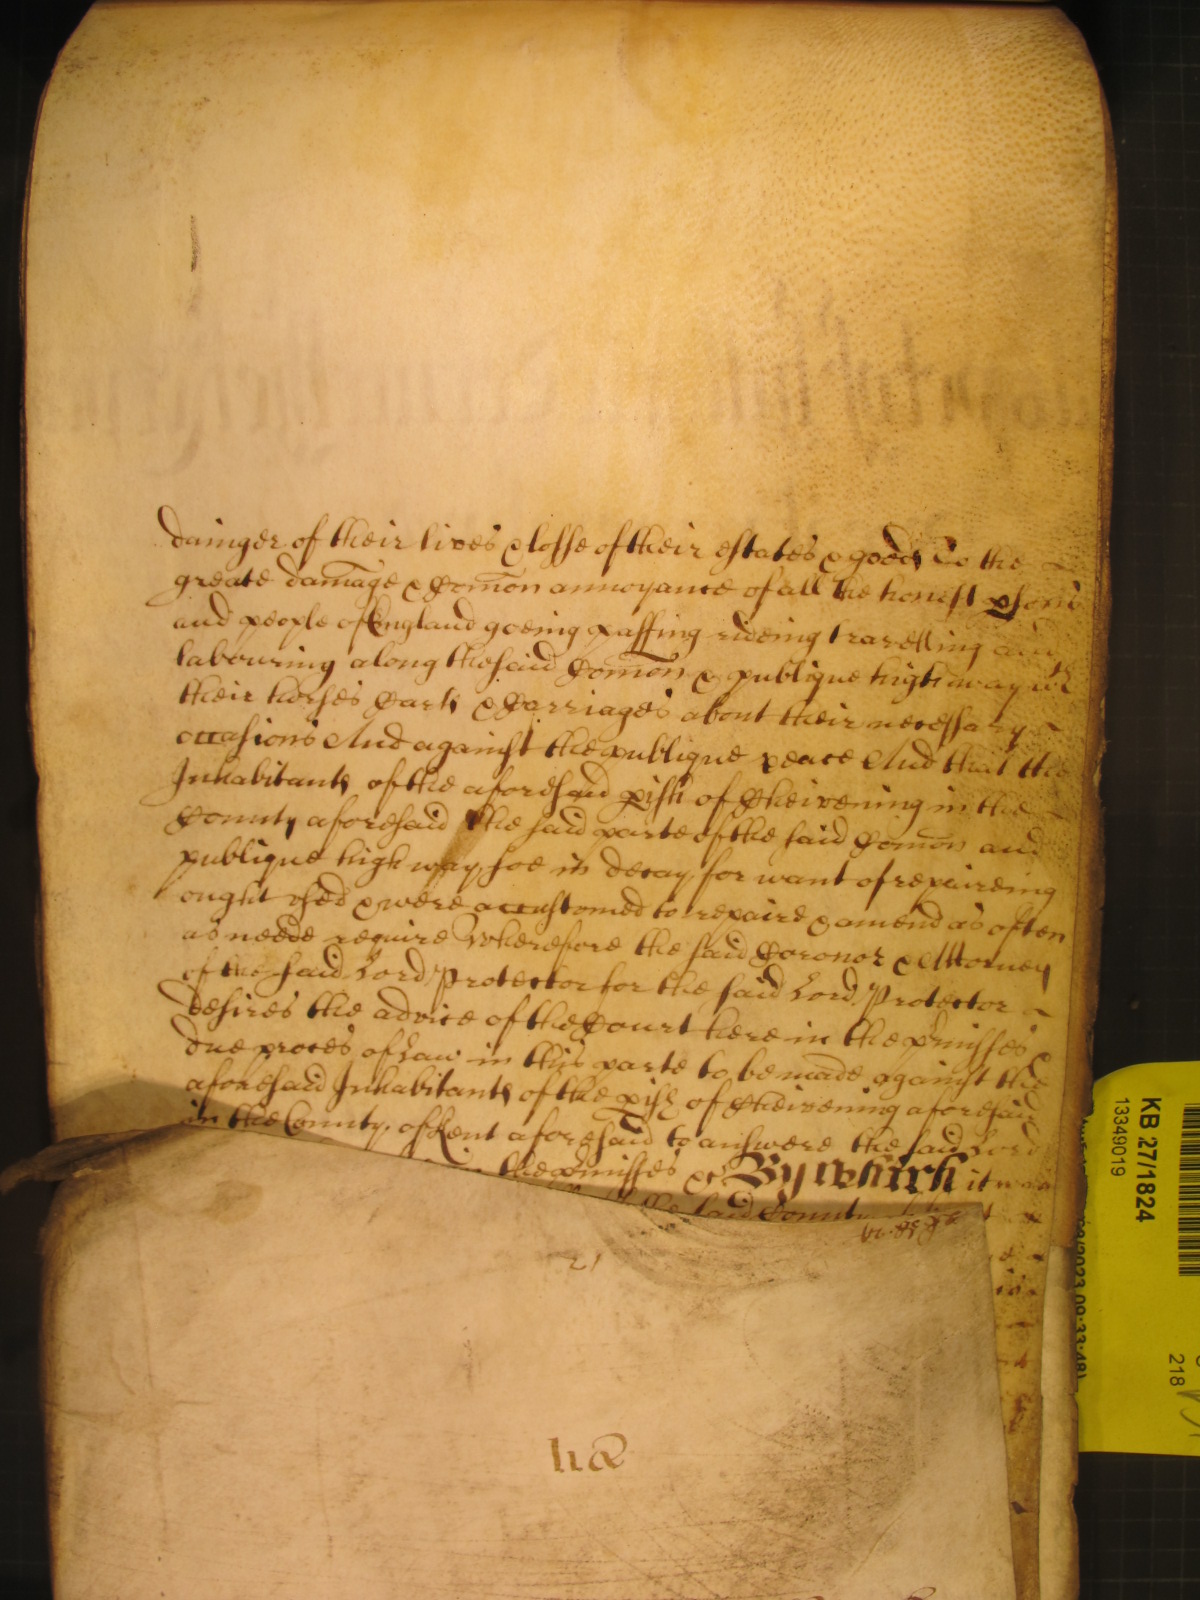 dainger of their lives & losse of their estates & goods To the
greate damage & Comon annoyance of all the honest psons
and people of England goeing passing rideing travelling and
labouring along the said Comon & publique high way wth
their horses Carts & Carriages about their necessary
occasions And against the publique peace And that the
Inhabitants of the aforesaid pish of Cheivening in the
County aforesaid the said parte of the said Comon and
publique high way soe in decay for want of repaireing
ought vsed & were accustomed to repaire & amend as often
as neede require Wherefore the said Coronor & Attorney
of the said Lord Protector for the said Lord Protector
desires the advice of the Court here in the pmisses &
due proces of Law in this parte to be made against the
aforesaid Inhabitants of the pish of Cheivening aforesaid
in the County of Kent aforesaid to answere the said Lord
the pmisses &c By which it was
the said County
21
KB 27/1824
13349019
218